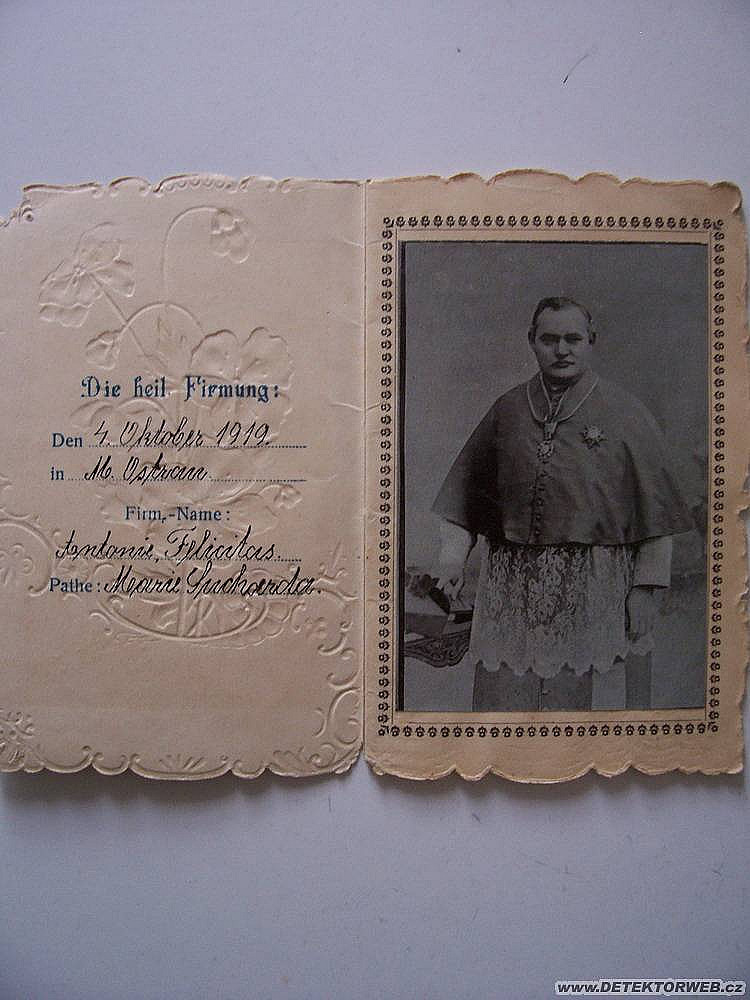 Die heil. Firmung:
Den 4. Oktober 1919.
in M. Ostrau
Firm.-Name:
Antonie, Felicitas
Pathe: Marie Suchaerda.
www.DETEKTORWEB.cz